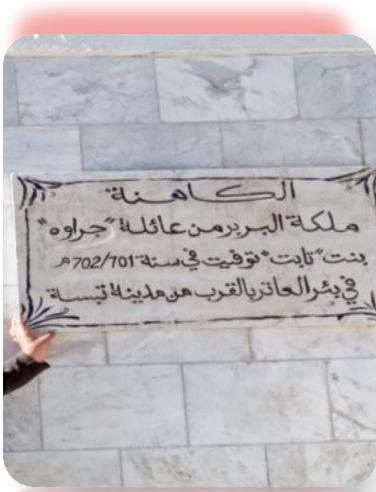 الكاهنة
ملكة البربر من عائلة "جراوه"
بنت "تابت" توفيت في سنة 702/701م
في بئر العاتر بالقرب من مدينة تبسة